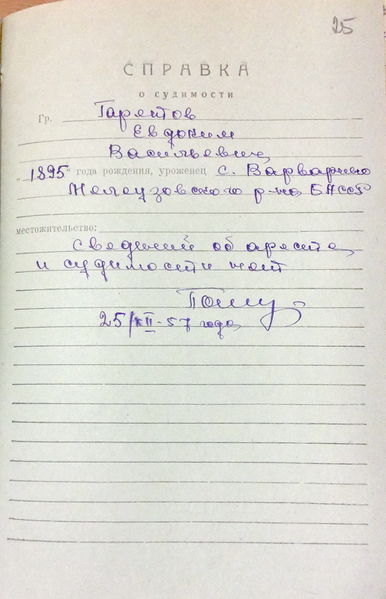 25
СПРАВКА
о судимости
Гр. Гареитов
Евдоким
Васильевич
"1895" года рождения, уроженец с. Варварино
Мелеузовского р-на БАССР
местожительство:
сведений об аресте
и судимости нет
25/XII-57 года